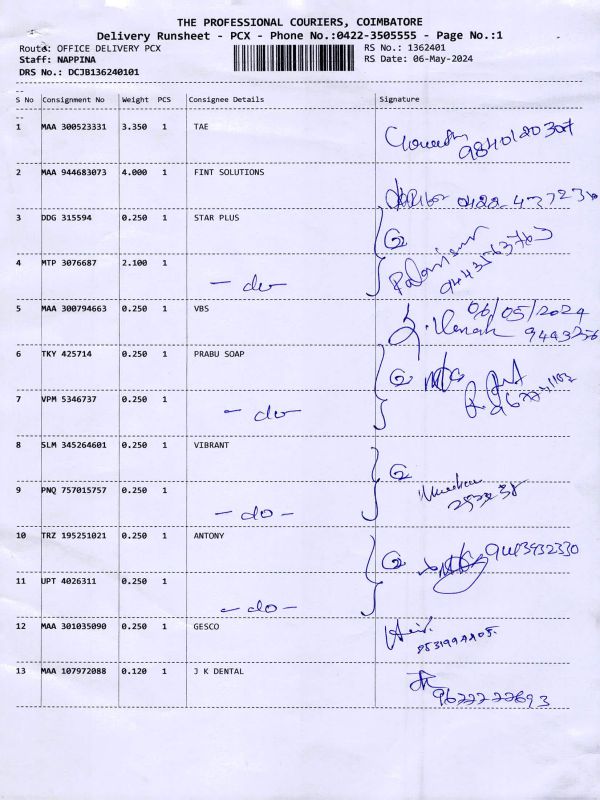 THE PROFESSIONAL COURIERS, COIMBATORE
Delivery Runsheet - PCX - Phone No.:0422-3505555 - Page No.:1
Route: OFFICE DELIVERY PCX RS No.: 1362401
Staff: NAPPINA RS Date: 06-May-2024
DRS No.: DCJB136240101
S No Consignment No Weight PCS Consignee Details Signature
1 MAA 300523331 3.350 1 TAE
2 MAA 944683073 4.000 1 FINT SOLUTIONS
3 DDG 315594 0.250 1 STAR PLUS 2
4 MTP 3076687 2.100 1 - do -
5 MAA 300794663 0.250 1 VBS 06/05/2024
6 TKY 425714 0.250 1 PRABU SOAP 2
7 VPM 5346737 0.250 1 - do -
8 SLM 345264601 0.250 1 VIBRANT 2
9 PNQ 757015757 0.250 1 - do -
10 TRZ 195251021 0.250 1 ANTONY 2
11 UPT 4026311 0.250 1 - do -
12 MAA 301035090 0.250 1 GESCO
13 MAA 107972088 0.120 1 J K DENTAL